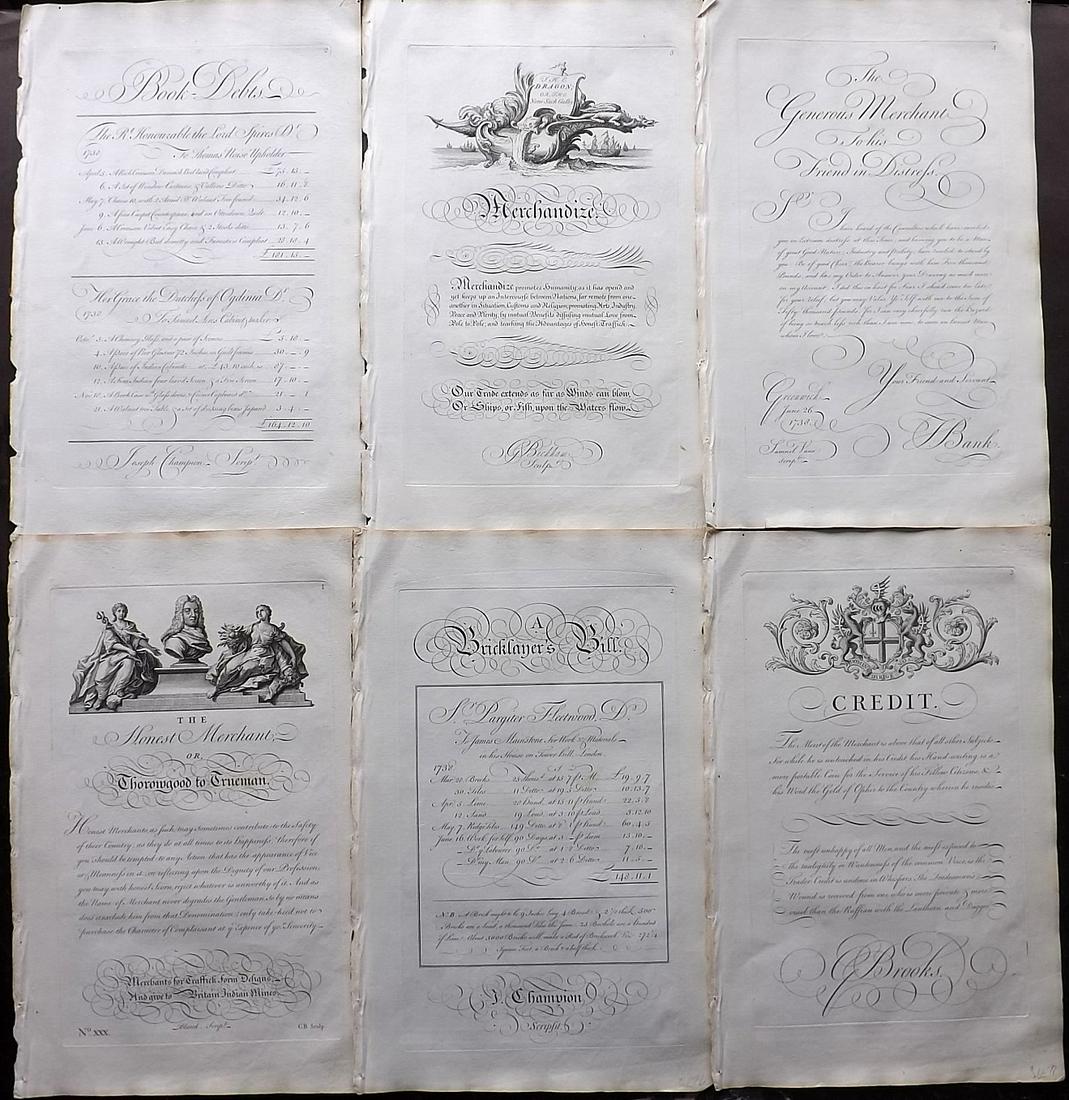 2
Book Debts
The Rt. Honourable the Lord Spires Dr.
1738 To Thomas Noise Upholder
April 5. A Rich Crimson Damask Bed lin'd Compleat £ 75. 15. _
6. A Set of Window Curtains & Vallens Ditto 16. 11. 8
May 7. Chairs 10, with 2 Armd Do. Walnut Tree found 34. 12. 6
9. A fine Carpet, Counterpane, and an Otterdown Quilt 12. 10. _
June 6. A Crimson Velvet Easy Chair & 2 Stools ditto 13. 7. 6
13. A Wrought Bed dimitty and Furniture Compleat 28. 18. 4
£ 181. 15. _
Her Grace the Dutchess of Ogdinia Dr.
1738 To Samuel Lens Cabinet maker
Octor. 3. A Chimney Glass and a pair of Sconces £ 5. 10. _
4. A pair of Pier Glasses 72 Inches in Guilt frames 30. _ 9
10. A pair of Indian Cabinets at £43.10 each is 87. _ _
12. A fine Indian four leav'd Screen & a Fire Screen 17. 10. _
Nov 10. A Book Case wth. Glass doors, & Cornet Cupboard do. 21. _ 1
21. A Walnut tree Table & a Set of dressing boxes Japand 3. 4. _
£ 164. 12. 10
Joseph Champion Scripst.
3
THE
DRAGON;
OR, THE
New Sick Gally
Merchandize.
Merchandize promotes Humanity, as it has open'd and
yet keeps up an Intercourse between Nations, far remote from one
another in Situation, Customs and Religion; promoting Arts, Industry,
Peace and Plenty, by mutual Benefits diffusing mutual Love from
Pole to Pole; and teaching the Advantages of Honest Traffick.
Our Trade extends as far as Winds can blow,
Or Ships, or Fish, upon the Waters flow.
G. Bickham
Sculpt.
4
The
Generous Merchant
To his
Friend in Distress.
Sr.
I have heard of the Casualties which have involv'd
you in extream distress at this Time; and knowing you to be a Man
of great Good Nature, Industry and Probity, have resolv'd to stand by
you. Be of good Chear, the Bearer brings with him Five thousand
Pounds, and has my Order to Answer your Drawing as much more
on my Account. I did this in haste for Fear I should come too late
for your Relief; but you may Value Yr. Self with me to the Sum of
Fifty thousand Pounds; for I can very chearfully run the Hazard
of being so much less rich than I am now, to save an honest Man
whom I love.
Your Friend and Servant
Greenwich
June 26
1738
T. Bank
Samuel Vaux
scrip.
1
THE
Honest Merchant,
OR,
Thorowgood to Trueman.
Honest Merchants, as such, may sometimes contribute to the Safety
of their Country, as they do at all times to its Happiness; therefore if
you should be tempted to any Action that has the appearance of Vice
or Meanness in it, on reflecting upon the Dignity of our Profession,
you may with honest Scorn, reject whatever is unworthy of it. And as
the Name of Merchant never degrades the Gentleman, so by no means
does it exclude him from that Denomination; only take heed not to
purchase the Character of Complaisant at ye Expence of yr. Sincerity.
Merchants for Traffick form Designs,
And give to Britain Indian Mines.
No. XXX. Bland Scripst. G.B. Sculp.
2
A
Bricklayer's Bill.
Sr. Pargiter Fleetwood, Dr.
To James Mainstone For Work & Materials
in his House on Tower hill, London
1738
Mar. 20. Bricks 25 Thousd. at 15. 7 pr. M. £ 19. 9. 7
30. Tiles 11 Ditto at 19. 5 Ditto 10. 13. 7
Apr. 5. Lime 20 Hund. at £1. 11 pr. Hund. 22. 5. 8
12. Sand 19 Loads, at 3. 10 pr. Load 3. 12. 10
May 7. Ridge tiles 149 Ditto at 8. pr. Hund. 60. 4. 5
June 16. Work for Self, 90 Days at 3 _ pr. diem 13. 10. _
Do. ye Labourer 90 Do. at 1. 8 Ditto 7. 10. _
Do. my Man 90 Do. at 2. 6 Ditto 11. 5. _
£ 148. 11. 1
N.B. A Brick ought to be 9 Inches long, 4 Broad & 2 1/2 thick. 500
Bricks are a Load, a thousand Tiles the Same. 25 Bushels are a hundred
of Lime. About 5000 Bricks will make a Rod of Brickwork Viz. 272 1/4
Square Feet, a Brick & a half thick.
J. Champion
Scripsit
3
CREDIT.
The Merit of the Merchant is above that of all other Subjects;
For while he is untouched in his Credit, his Hand-writing is a
more portable Coin for the Service of his Fellow Citizens, &
his Word the Gold of Ophir to the Country wherein he resides.
The most unhappy of all Men, and the most exposed to
the malignity or Wantonness of the common Voice, is the
Trader. Credit is undone in Whispers. The Tradesman's
Wound is received from one who is more private & more
cruel than the Ruffian with the Lanthorn and Dagger.
G. Brooks,